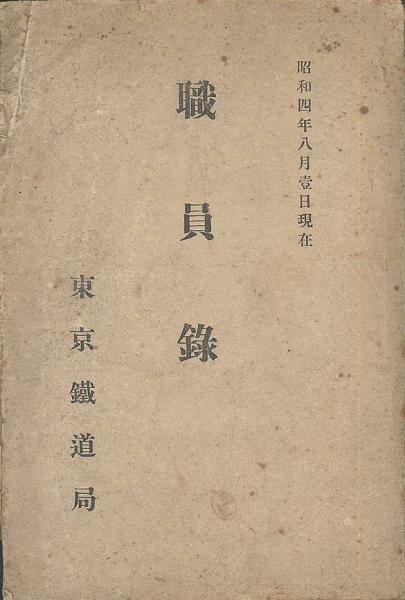 昭和四年八月壹日現在
職員錄
東京鐵道局